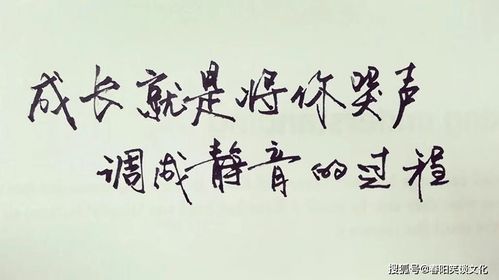 成长就是将你哭声
调成静音的过程
搜狐号@春阳笑谈文化